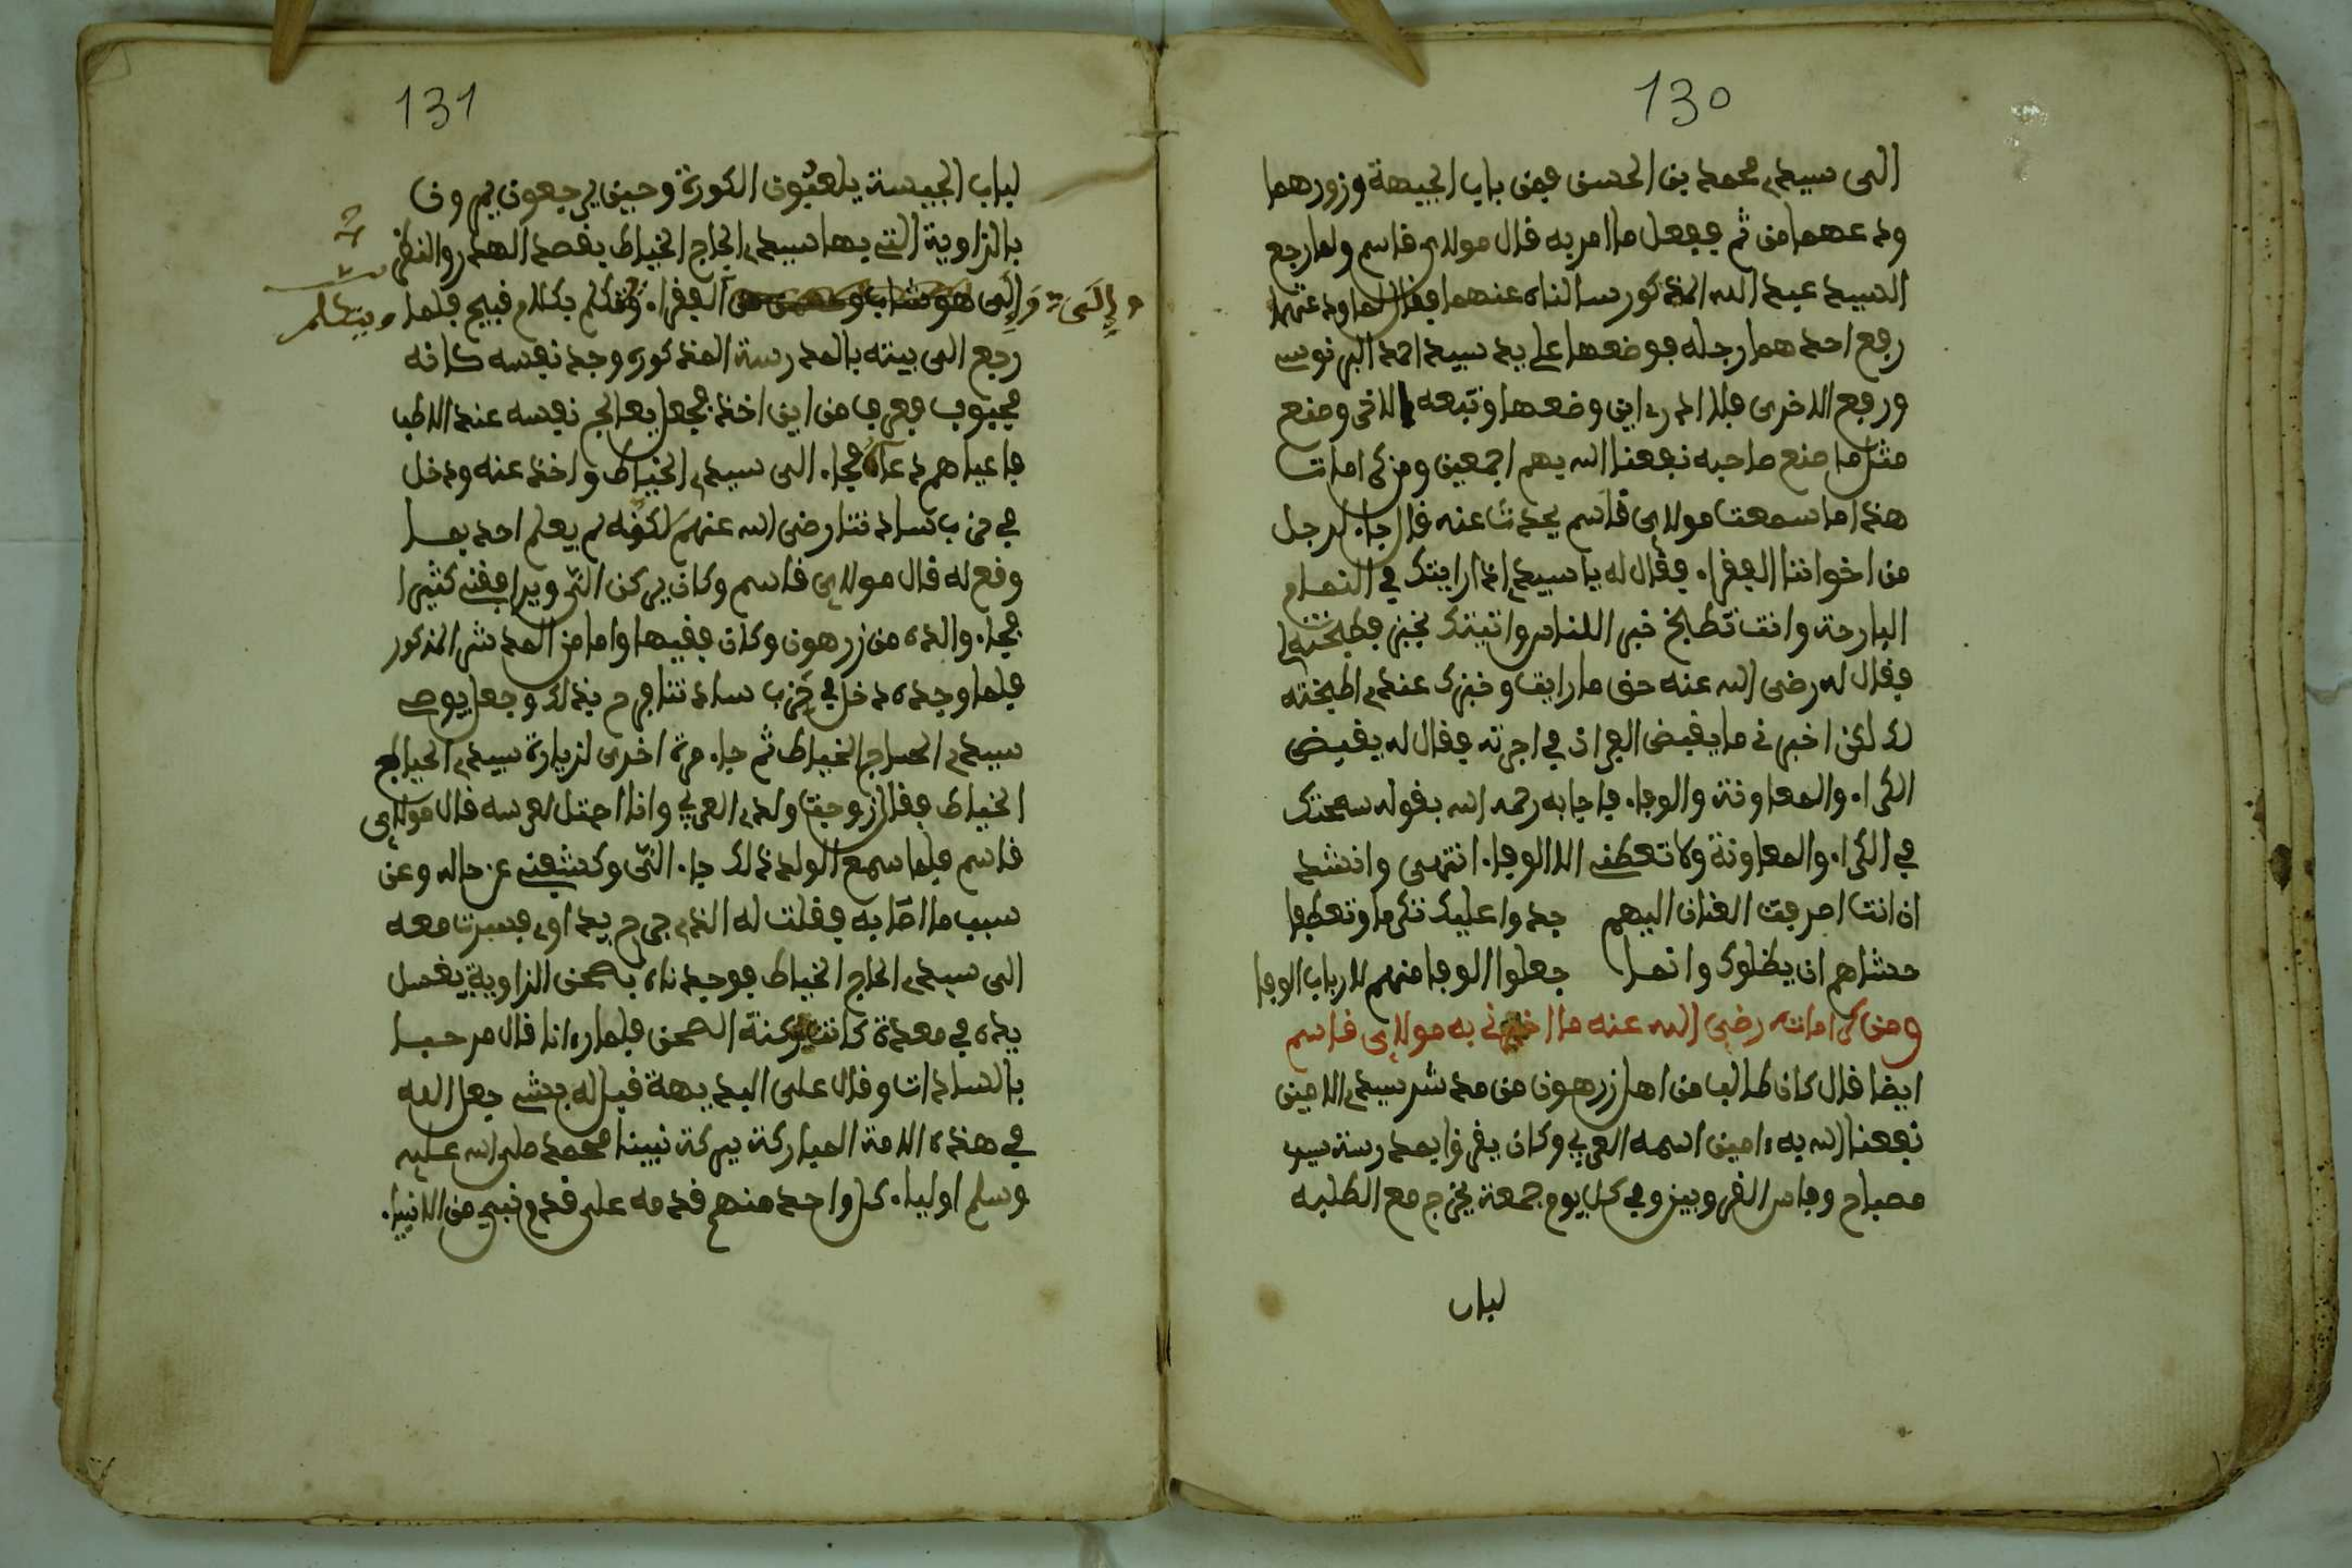 130
الى سيدي محمد بن الحسن فمن باب الجيهة وزورهما
ودعهما من ثم ففعل ما امر به قال مولاي قاسم ولما رجع
السيد عبد الله المذكور سالناه عنهما فقال لما ودعتهما
رفع احدهما رجله فوضعها على يد سيد احمد البرنوسي
ورفع الاخرى فلا ادري اين وضعها وتبعه الاخر وصنع
مثل ما صنع صاحبه نفعنا الله بهم اجمعين ومن كراماته
هذا ما سمعت مولاي قاسم يحدث عنه قال جاء رجل
من اخواننا الفقراء فقال له يا سيدي اني رايتك في المنام
البارحة وانت تطبخ خبز الناس واتيتك بخبز فطبخته لي
فقال له رضي الله عنه حق ما رايت وخبزك عندي اطبخته
لك لكن اخبرني ما يقبض الفران في اجرته فقال له يقبض
الكراء والمعاونة والوفاء فاجابه رحمه الله بقوله سمحتك
في الكراء والمعاونة ولا تعطني الا الوفاء انتهى وانشد
ان انت اصرفت العنان اليهم جدوا عليك تكرما وتعطفا
حشاهم ان يظلموك وانما جعلوا الوفا منهم لارباب الوفا
ومن كراماته رضي الله عنه ما اخبرني به مولاي قاسم
ايضا قال كان طالب من اهل زرهون من مدشر سيدي الامين
نفعنا الله به امين اسمه العربي وكان يقرا بمدرسة سيدي
مصباح وفاس القرويين وفي كل يوم جمعة يخرج مع الطلبة
لباب
131
لباب الجيسة يلعبون الكورة وحين يرجعون يمرون
بالزاوية التي بها سيدي الحاج الخياط يقصد الهدر والنظر
والى والى هو الفقراء ويتكلم بكلام قبيح فلما
ويتكلم
رجع الى بيته بالمدرسة المذكورة وجد نفسه كانه
مجبوب فعرف من اين اخذ فجعل يعالج نفسه عند الاطبا
فاعياهم دعاؤه فجاء الى سيدي الخياط واخذ عنه ودخل
في حزب ساداتنا رضي الله عنهم لكونه لم يعلم احد بما
وقع له قال مولاي قاسم وكان يركن الي ويرافقني كثيرا
فجاء والده من زرهون وكان فقيها واماما من المدشر المذكور
فلما وجده دخل في حزب ساداتنا فرح بذلك وجعل يوصي
سيدي الحاج الخياط ثم جاء مرة اخرى لزيارة سيدي الحاج
الخياط فقال زوجت ولدي العربي وانا احتفل لعرسه قال مولاي
قاسم فلما سمع الولد ذلك جاء الي وكشفني عن حاله وعن
سبب ما اصابه فقلت له الذي جرح يداوي فسرت معه
الى سيدي الحاج الخياط فوجدناه بصحن الزاوية يغسل
يده في معدة كانت بركنة الصحن فلما رءانا قال مرحبا
بالسادات وقال على البديهة قبل له بشي جعل الله
في هذه الامة المباركة ببركة نبينا محمد صلى الله عليه
وسلم اولياء كل واحد منهم قدمه على قدم نبي من الانبياء